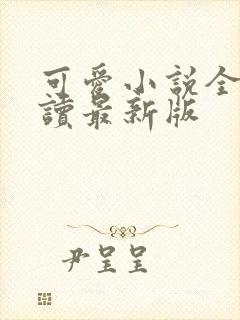 可愛小說全
讀最新版
尹呈呈